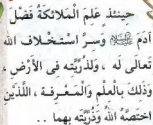 حِينَئِذٍ عَلِمَ الْمَلَائِكَةُ فَضْلَ
آدَمَ ﷺ وَسِرَّ اسْتِخْلَافِ اللهِ
تَعَالَى لَهُ ، وَلِذُرِّيَّتِهِ فِى الْأَرْضِ ،
وَذَلِكَ بِالْعِلْمِ وَالْمَعْرِفَةِ ، اللَّذَيْنِ
اخْتَصَّهُ اللهُ وَذُرِّيَّتَهُ بِهِمَا ..